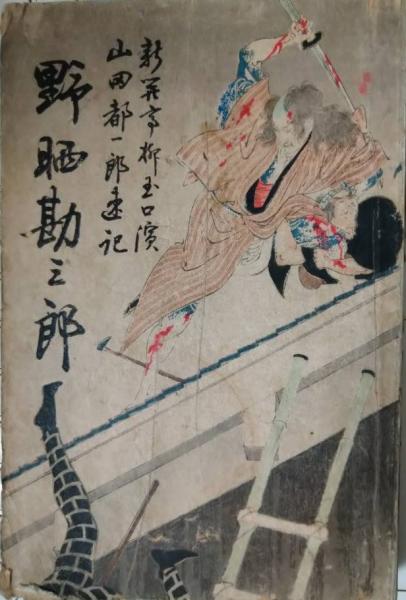 新芳亭柳玉口演
山田都一郎速記
野晒勘三郎